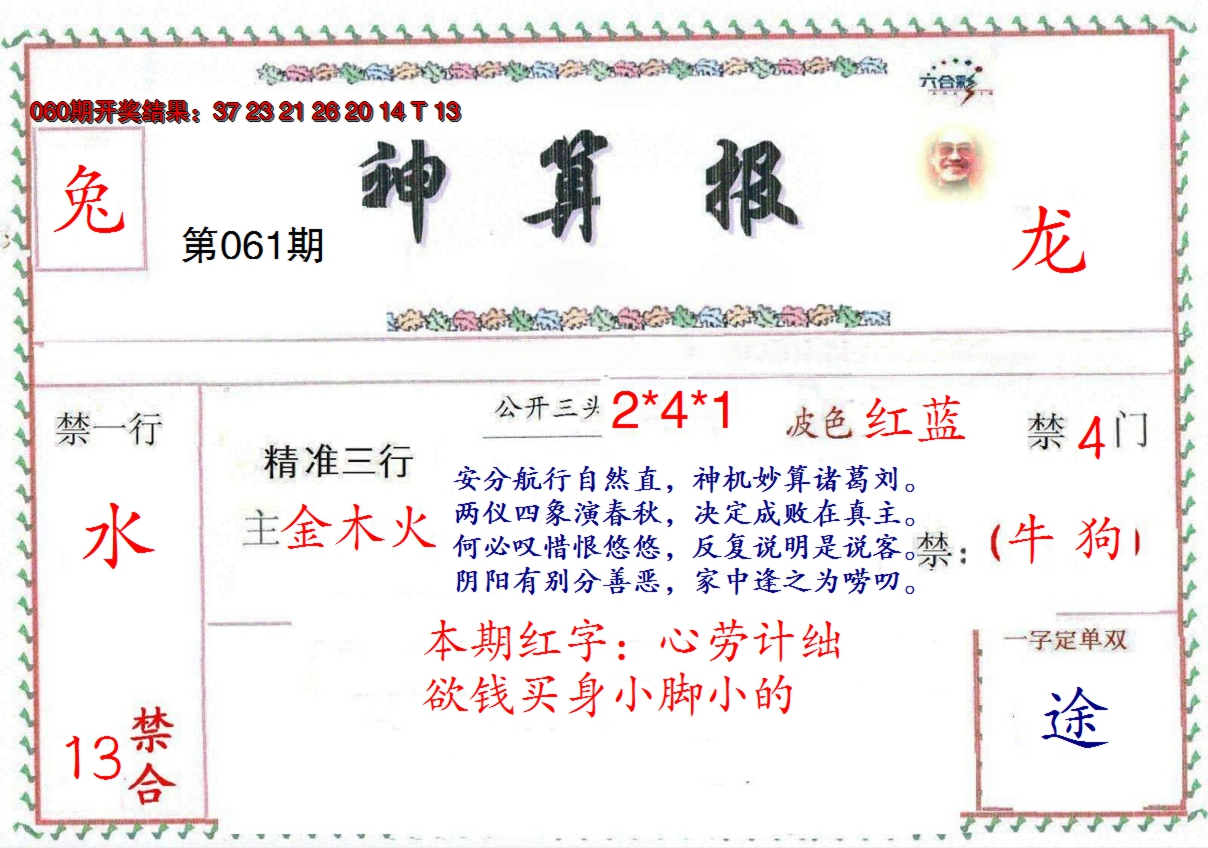 060期开奖结果：37 23 21 26 20 14 T 13
六合彩
神算报
兔
第061期
龙
禁一行
水
13禁合
精准三行
主金木火
公开三头 2*4*1
波色红蓝
禁4门
安分航行自然直，神机妙算诸葛刘。
两仪四象演春秋，决定成败在真主。
何必叹惜恨悠悠，反复说明是说客。
阴阳有别分善恶，家中逢之为唠叨。
禁：（牛 狗）
本期红字：心劳计绌
欲钱买身小脚小的
一字定单双
途